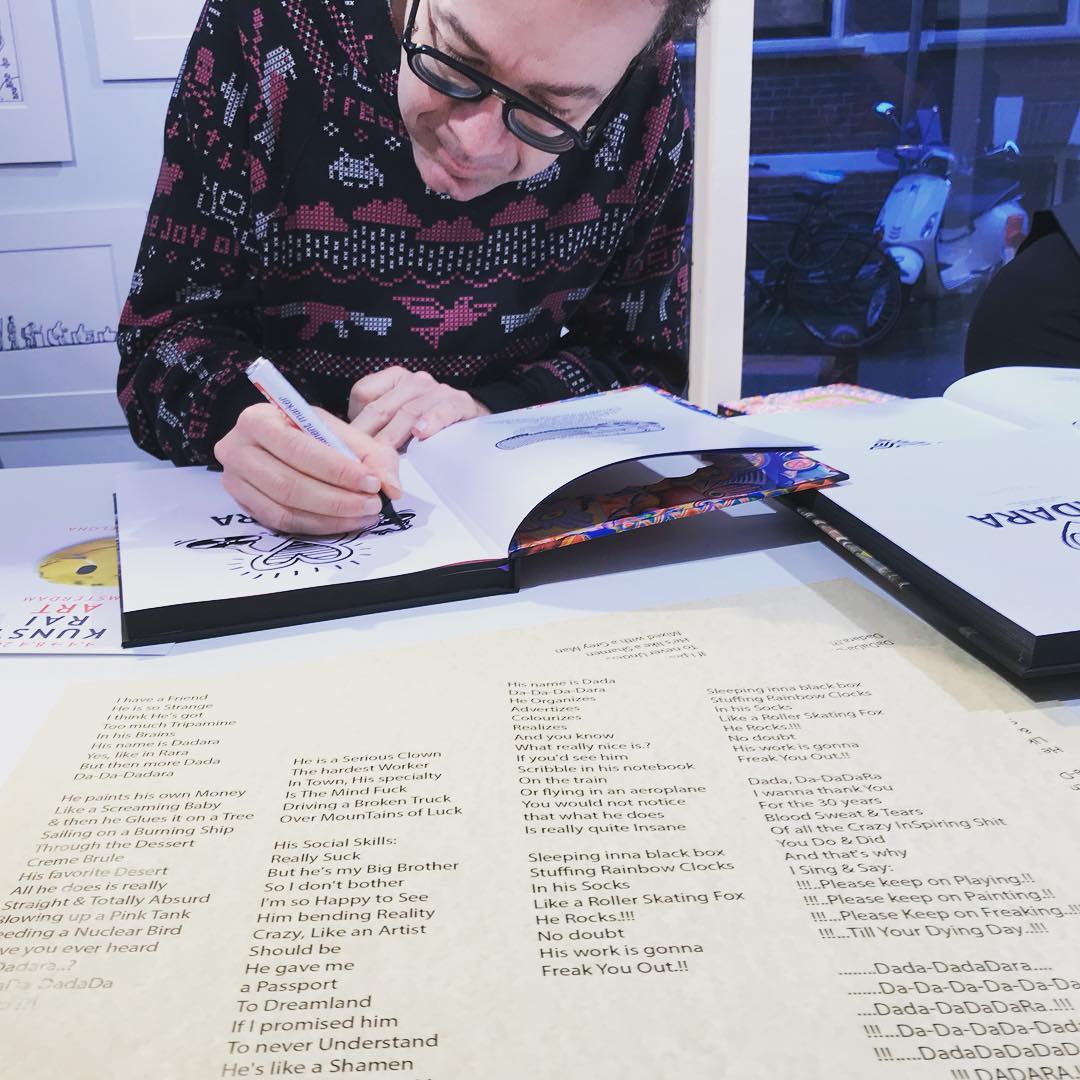 permanent marker
JOY
DARA
DARA
ELONA
MSTERDAM
ART
RAI
KUNS
I have a Friend
He is so Strange
I think He's got
Too much Tripamine
In his Brains
His name is Dadara
Yes, like in Rara
But then more Dada
Da-Da-Dadara
He paints his own Money
Like a Screaming Baby
& then he Glues it on a Tree
Sailing on a Burning Ship
Through the Dessert
Creme Brule
His favorite Desert
All he does is really
Straight & Totally Absurd
Blowing up a Pink Tank
eeding a Nuclear Bird
ve you ever heard
Dadara..?
DadaDa
He is a Serious Clown
The hardest Worker
In Town, His specialty
Is The Mind Fuck
Driving a Broken Truck
Over MounTains of Luck
His Social Skills:
Really Suck
But he's my Big Brother
So I don't bother
I'm so Happy to See
Him bending Reality
Crazy, Like an Artist
Should be
He gave me
a Passport
To Dreamland
If I promised him
To never Understand
He's like a Shamen
If I
To never Un
He's like a Shamen
Mixed with a Grey Man
His name is Dada
Da-Da-Da-Dara
He Organizes
Advertizes
Colourizes
Realizes
And you know
What really nice is.?
If you'd see him
Scribble in his notebook
On the train
Or flying in an aeroplane
You would not notice
that what he does
Is really quite Insane
Sleeping inna black box
Stuffing Rainbow Clocks
In his Socks
Like a Roller Skating Fox
He Rocks.!!!
No doubt
His work is gonna
Freak You Out.!!
Sleeping inna black box
Stuffing Rainbow Clocks
In his Socks
Like a Roller Skating Fox
He Rocks.!!!
No doubt
His work is gonna
Freak You Out.!!
Dada, Da-DaDaRa
I wanna thank You
For the 30 years
Blood Sweat & Tears
Of all the Crazy InSpiring Shit
You Do & Did
And that's why
I Sing & Say:
!!!..Please keep on Playing.!!
!!!..Please keep on Painting.!!
!!!...Please Keep on Freaking..!!!
!!!...Till Your Dying Day..!!!
.......Dada-DadaDara.....
.......Da-Da-Da-Da-Da-Da
....Dada-DaDaDaRa..!!!!
!!!...Da-Da-DaDa-Dad
!!!.....DadaDaDaDaD
!!!.DADARA.!